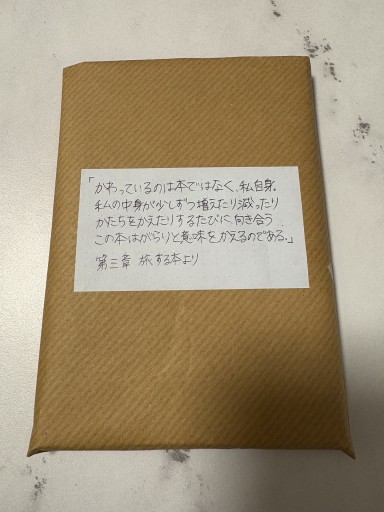 「かわっているのは本ではなく、私自身。
私の中身が少しずつ増えたり減ったり
かたちをかえたりするたびに、向き合う
この本はがらりと意味をかえるのである。」
第三章 旅する本より